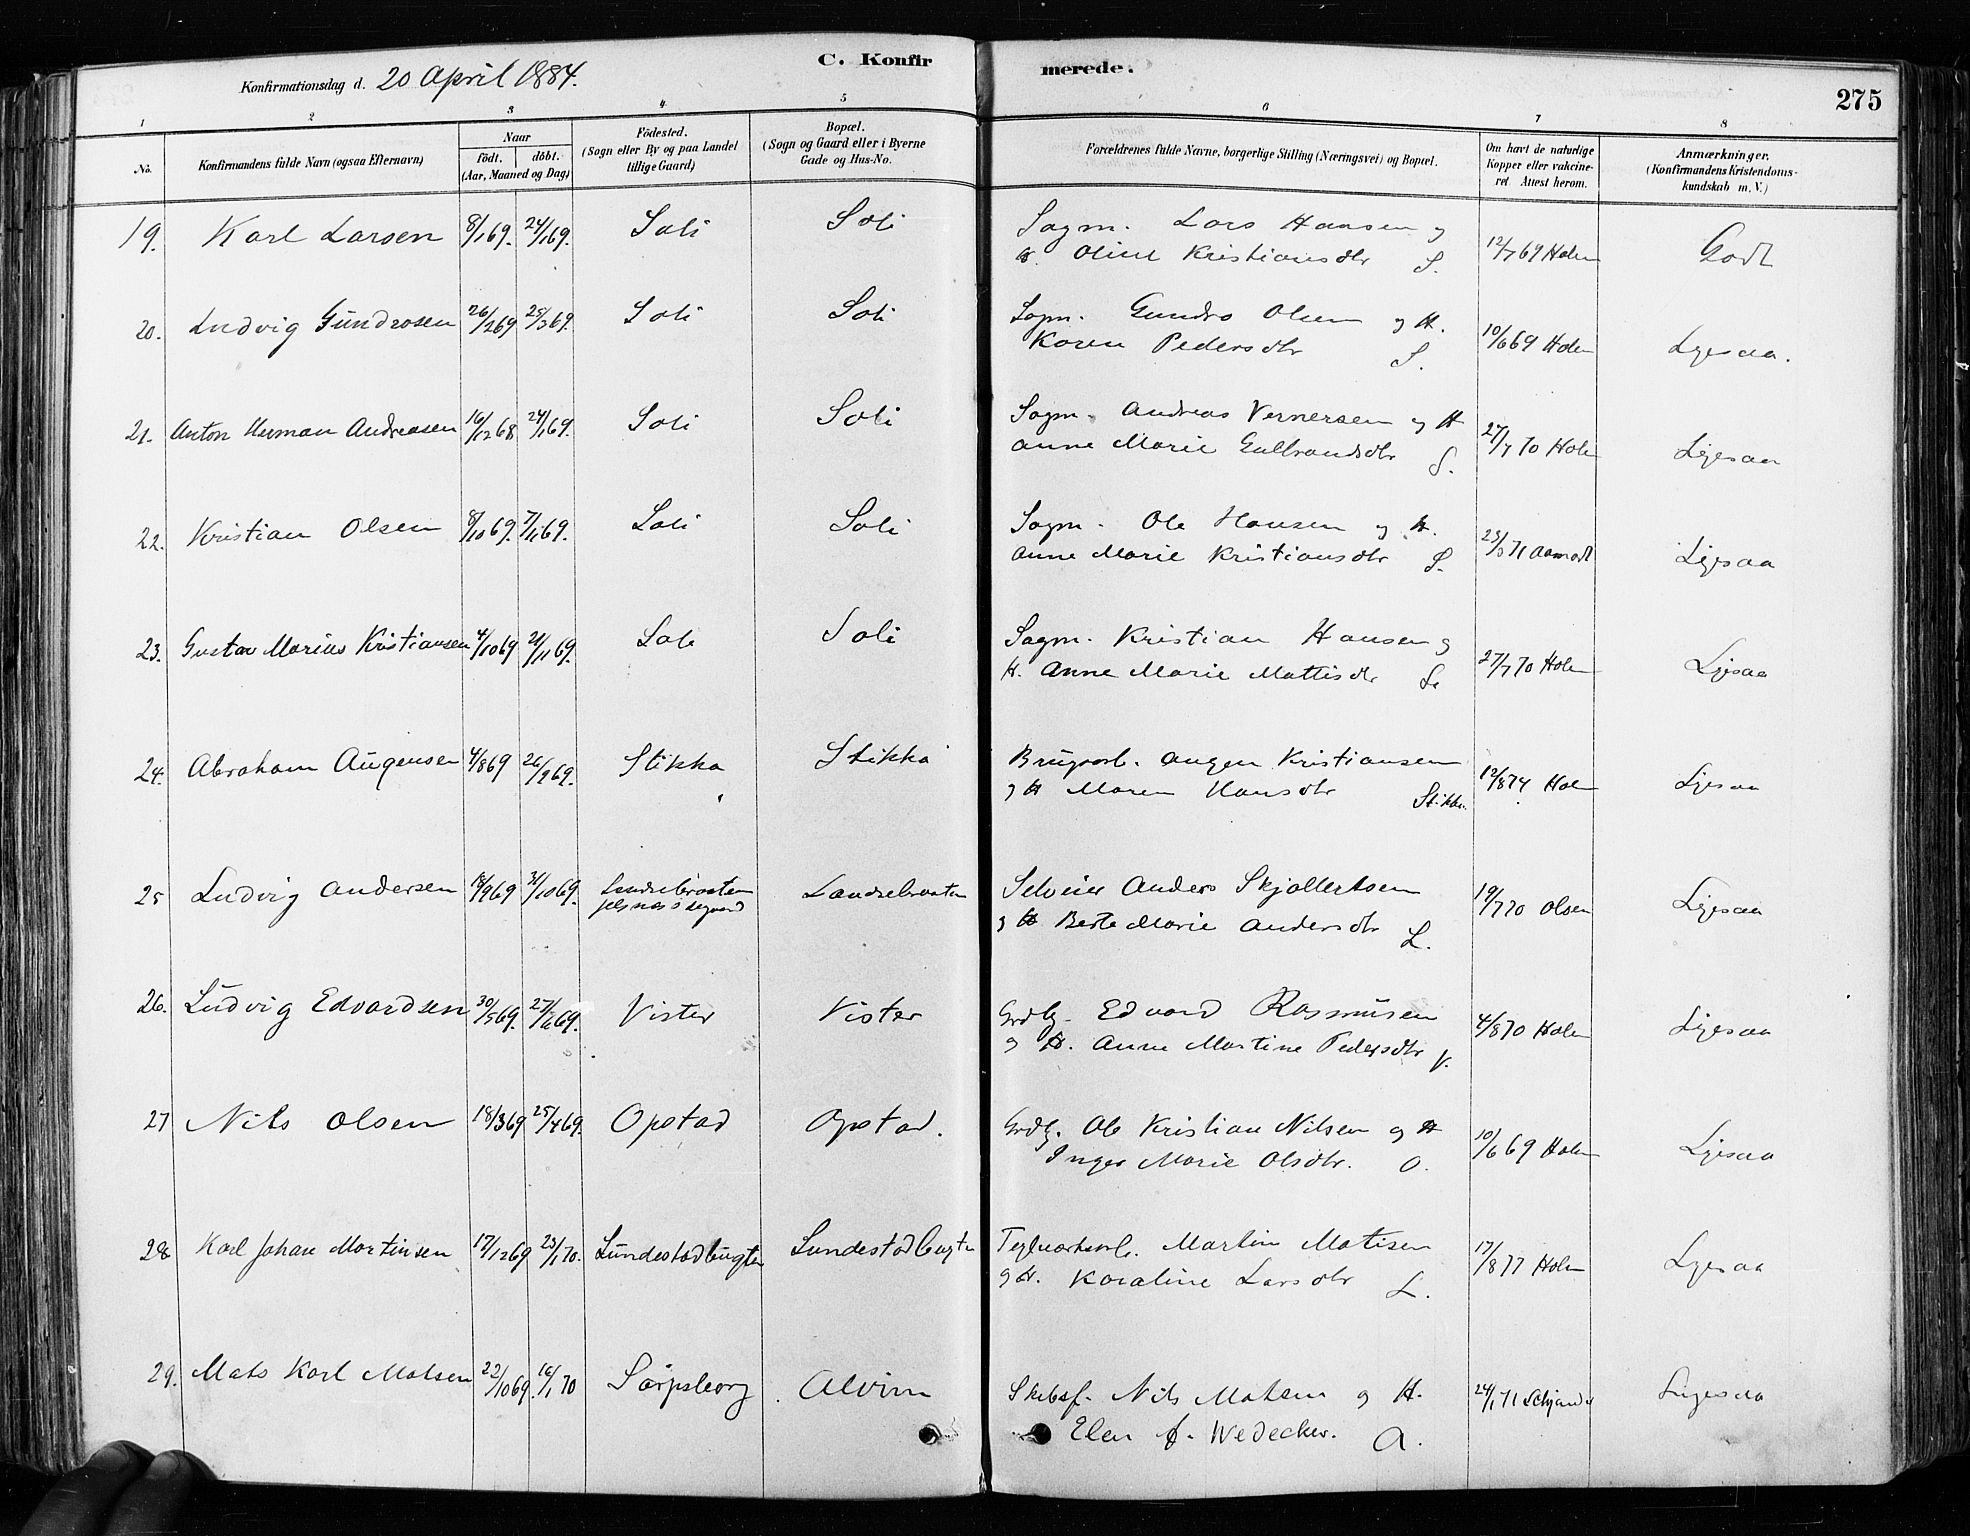 C. Konfir
merede.
275
Konfirmationsdag d. 20 April 1884.
1 2 3 4 5 6 7 8
No.
Konfirmandens fulde Navn (ogsaa Efternavn)
Naar
födt. döbt.
(Aar, Maaned og Dag)
Födested.
(Sogn eller By og paa Landet
tillige Gaard)
Bopæl.
(Sogn og Gaard eller i Byerne
Gade og Hus-No.
Forældrenes fulde Navne, borgerlige Stilling (Næringsvei) og Bopæl.
Om havt de naturlige
Kopper eller vakcine-
ret Attest herom.
Anmærkninger.
(Konfirmandens Kristendoms-
kundskab m. V.)
19. Karl Larsen 8/1 69. 24/1 69. Soli Soli Sagm. Lars Hansen og
H. Oline Kristiansdtr S. 12/7 69 Holm Godt
20. Ludvig Gundrosen 26/2 69 25/3 69. Soli Soli Sagm. Gundro Olsen og H.
Karen Pedersdtr S. 10/6 69 Holm Ligesaa.
21. Anton Herman Andreasen 16/12 68 24/1 69. Soli Soli Sagm. Andreas Vernersen og H
Anne Marie Gulbrandsdtr S. 27/7 70 Holm Ligesaa
22. Kristian Olsen 8/10 69. 7/11 69. Soli Soli Sagm. Ole Hansen og H.
Anne Marie Kristiansdtr S. 23/3 71 Aamodt Ligesaa
23. Gustav Marius Kristiansen 4/10 69 21/11 69. Soli Soli Sagm. Kristian Hansen og
H. Anne Marie Mattisdtr S. 27/7 70 Holm Ligesaa
24. Abraham Augensen 4/8 69 26/9 69. Stikka Stikka Brugsarb. Augen Kristiansen
og H Maren Hansdtr Stikka. 12/8 74 Holm Ligesaa
25 Ludvig Andersen 18/9 69 31/10 69. Landsebraaten Selveier Anders Skjollertsen
og H Berte Marie Andersdtr L. 19/7 70 Olsen Ligesaa
26. Ludvig Edvardsen 30/5 69. 27/6 69. Vister Vister Grdbg. Edvard Rasmusen
og H. Anne Martine Pedersdtr V. 4/8 70 Holm Ligesaa
27 Nils Olsen 18/3 69 25/4 69. Opstad Opstad. Grdbg. Ole Kristian Nilsen og H
Inger Marie Olsdtr. O. 10/6 69 Holm Ligesaa
28 Karl Johan Martinsen 17/12 69 23/1 70. Lundestadbugten Lundestadbugten Teglværksarb. Martin Matisen
og H. Karoline Larsdtr L. 17/8 77 Holm Ligesaa
29. Mats Karl Matsen 22/10 69. 16/1 70 Sarpsborg Alvim Skibsf. Nils Matsen og H.
Elen f. Wedecker. A. 24/1 71 Ligesaa